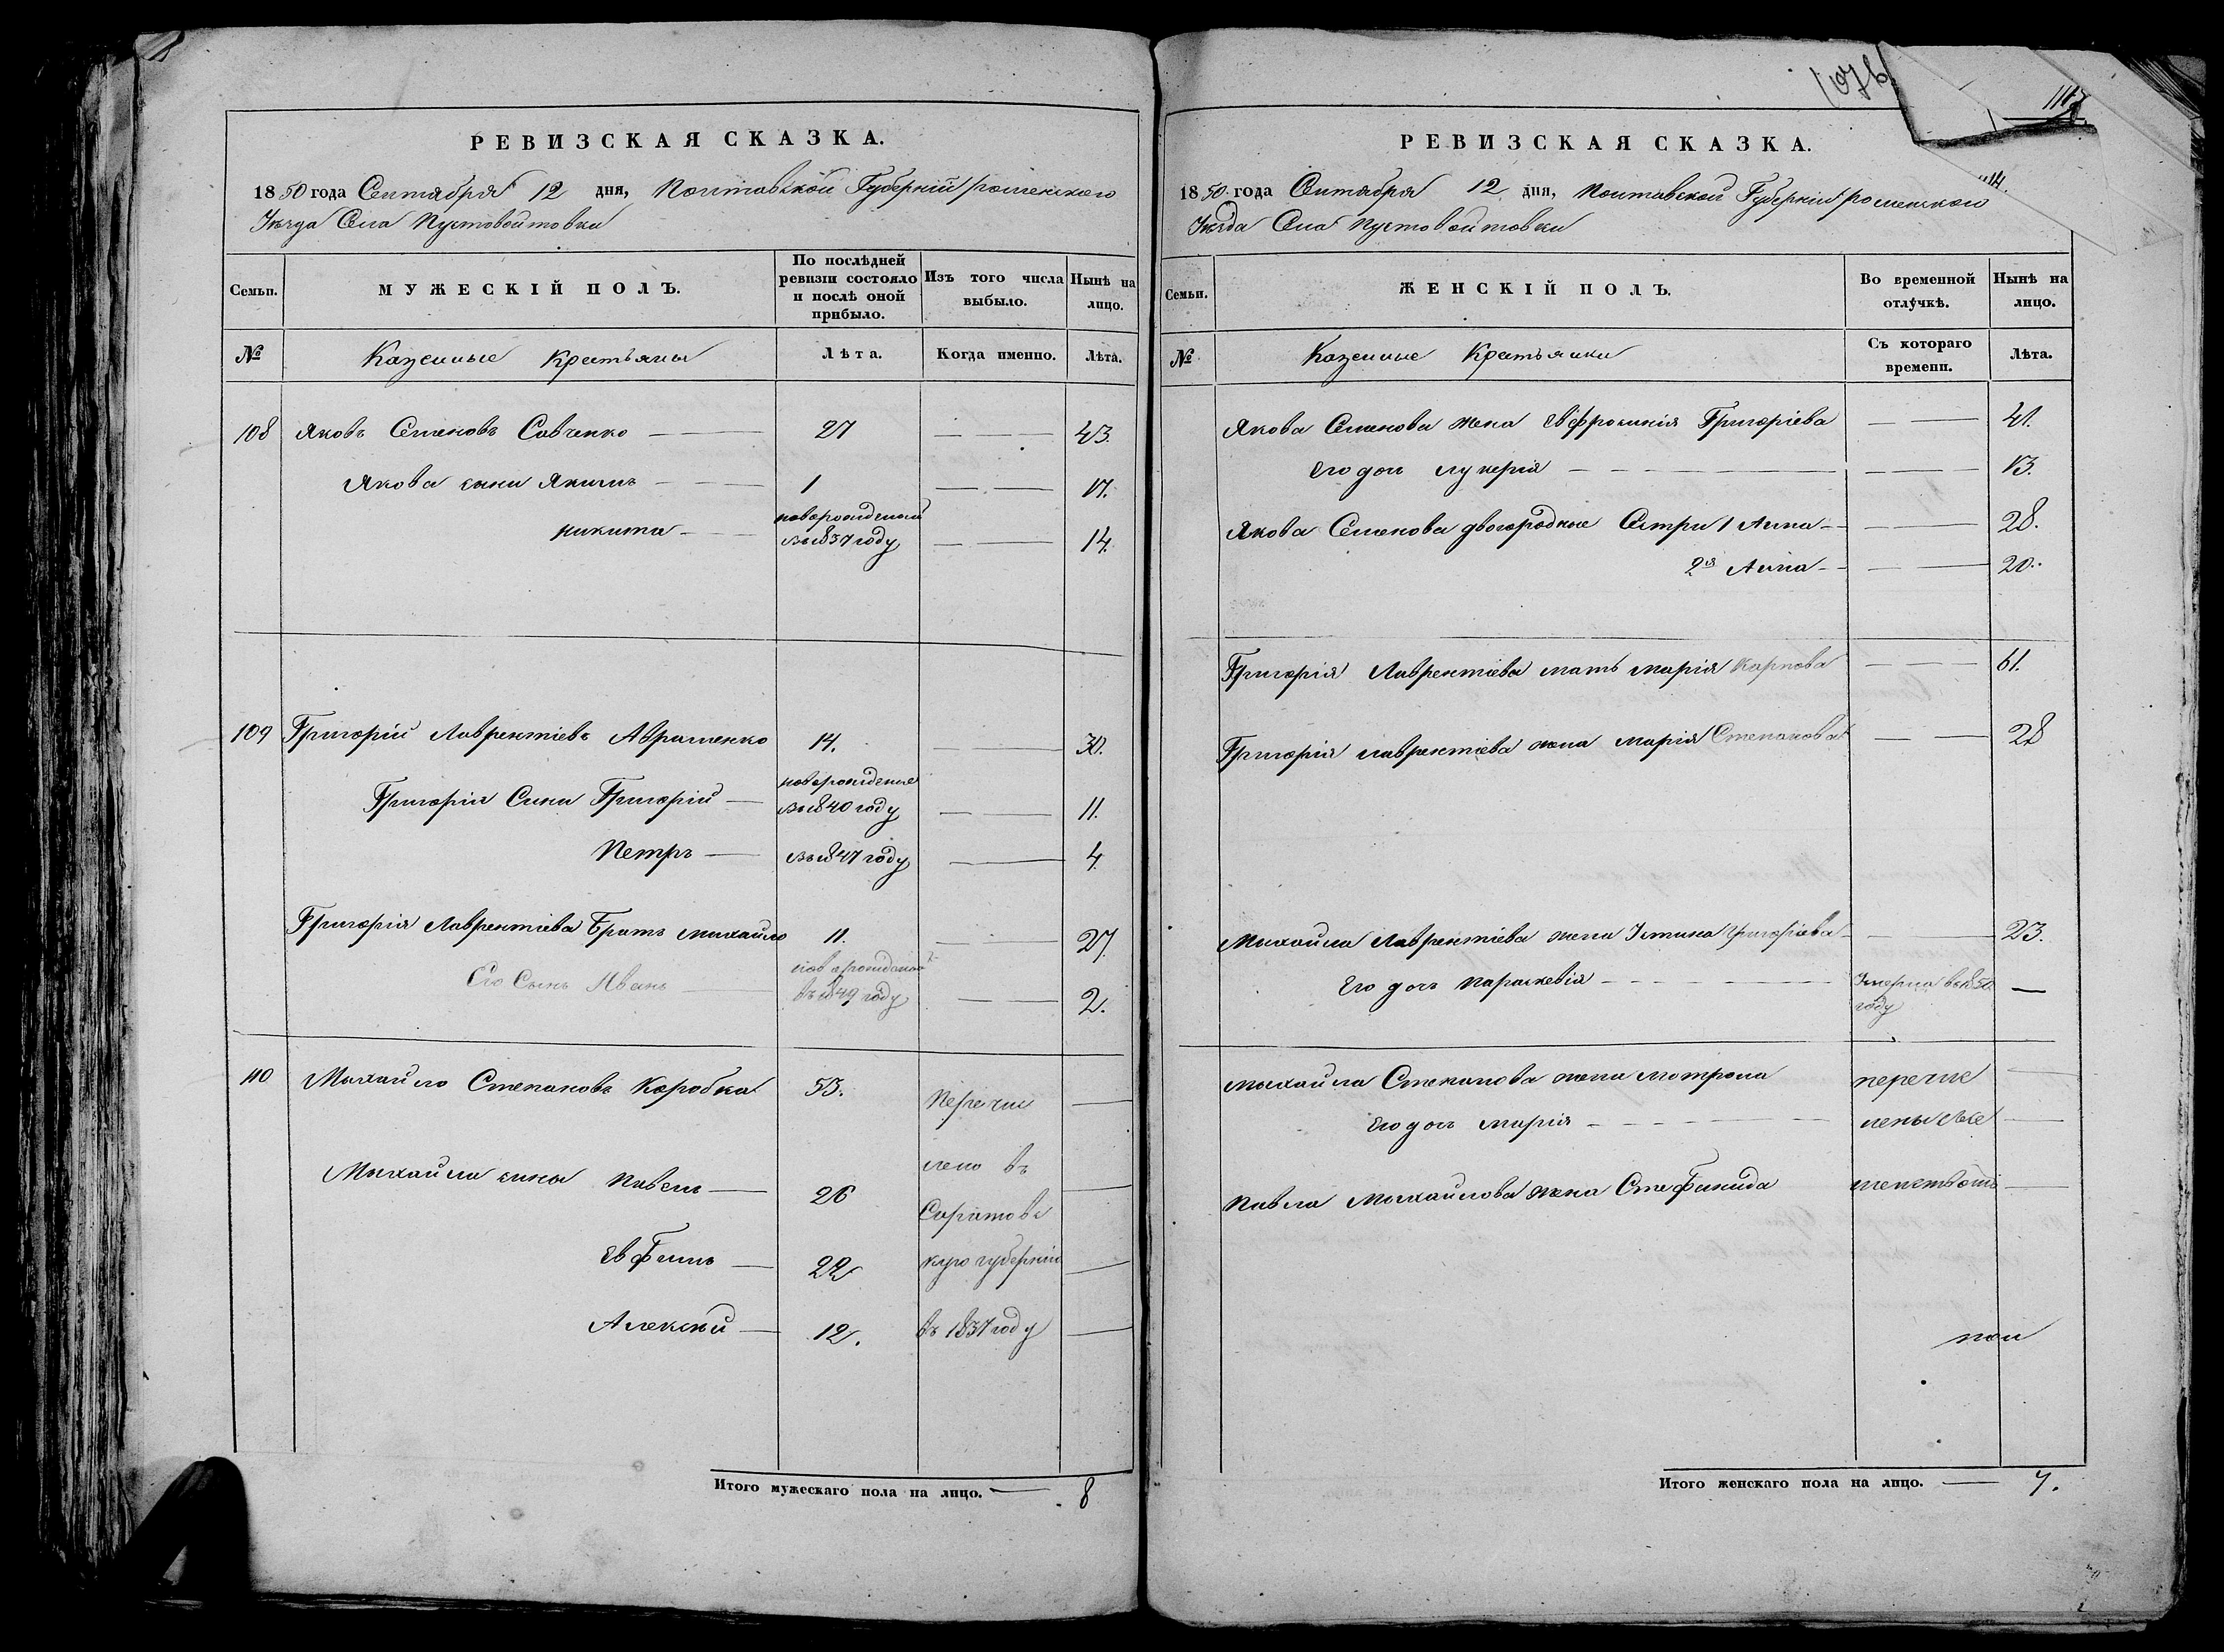 РЕВИЗСКАЯ СКАЗКА.
1850 года Сентября 12 дня, Полтавской Губерніи роменского
Уезда Села Пустовойтовки
Семьи. МУЖЕСКІЙ ПОЛЪ. По послѣдней ревизіи состояло и послѣ оной прибыло. Изъ того числа выбыло. Нынѣ на лицо.
№ Казенные Крестьяны Лѣта. Когда именно. Лѣта.
108 Яковъ Семеновъ Савченко 27 43.
Якова сыни Якимъ 1 17.
никита новорожденый въ 1837 году 14.
109 Григорій Лаврентіевъ Авраменко 14. 30.
Григорія Сини Григорій новорожденые въ 1840 году 11.
Петръ въ 1847 году 4.
Григорія Лаврентіева Братъ михайло 11. 27.
Его Сынъ Иванъ въ 1849 году 2.
110 Михайло Степановъ Коробка 53. Перечис
Михайла сины Павелъ 26 лено въ Саратовс
Евфимъ 22 кую губернію
Алексѣй 12. въ 1837 году
Итого мужескаго пола на лицо. 8
1076
РЕВИЗСКАЯ СКАЗКА.
1850 года Сентября 12 дня, Полтавской Губерніи роменского
Уезда Села Пустовойтовки
Семьи. ЖЕНСКІЙ ПОЛЪ. Во временной отлучкѣ. Нынѣ на лицо.
№ Казенные Крестьянки Съ котораго времени. Лѣта.
Якова Семенова жена Евфросинія Григоріева 41.
Его доч лукерія 13.
Якова Семенова двоюродные Сестри 1 Анна 28.
2я Анна 20.
Григорія Лаврентіева мать марія Карпова 61.
Григорія лаврентіева жена марія Степанова 28
Михайла лаврентіева жена Устина Григоріева 23.
Его доч параскевія Умерла в 1850 году
михайла Степанова жена мотрона перечис
Его доч марія
Павла Михайлова жена Стефанида
Итого женскаго пола на лицо. 7.